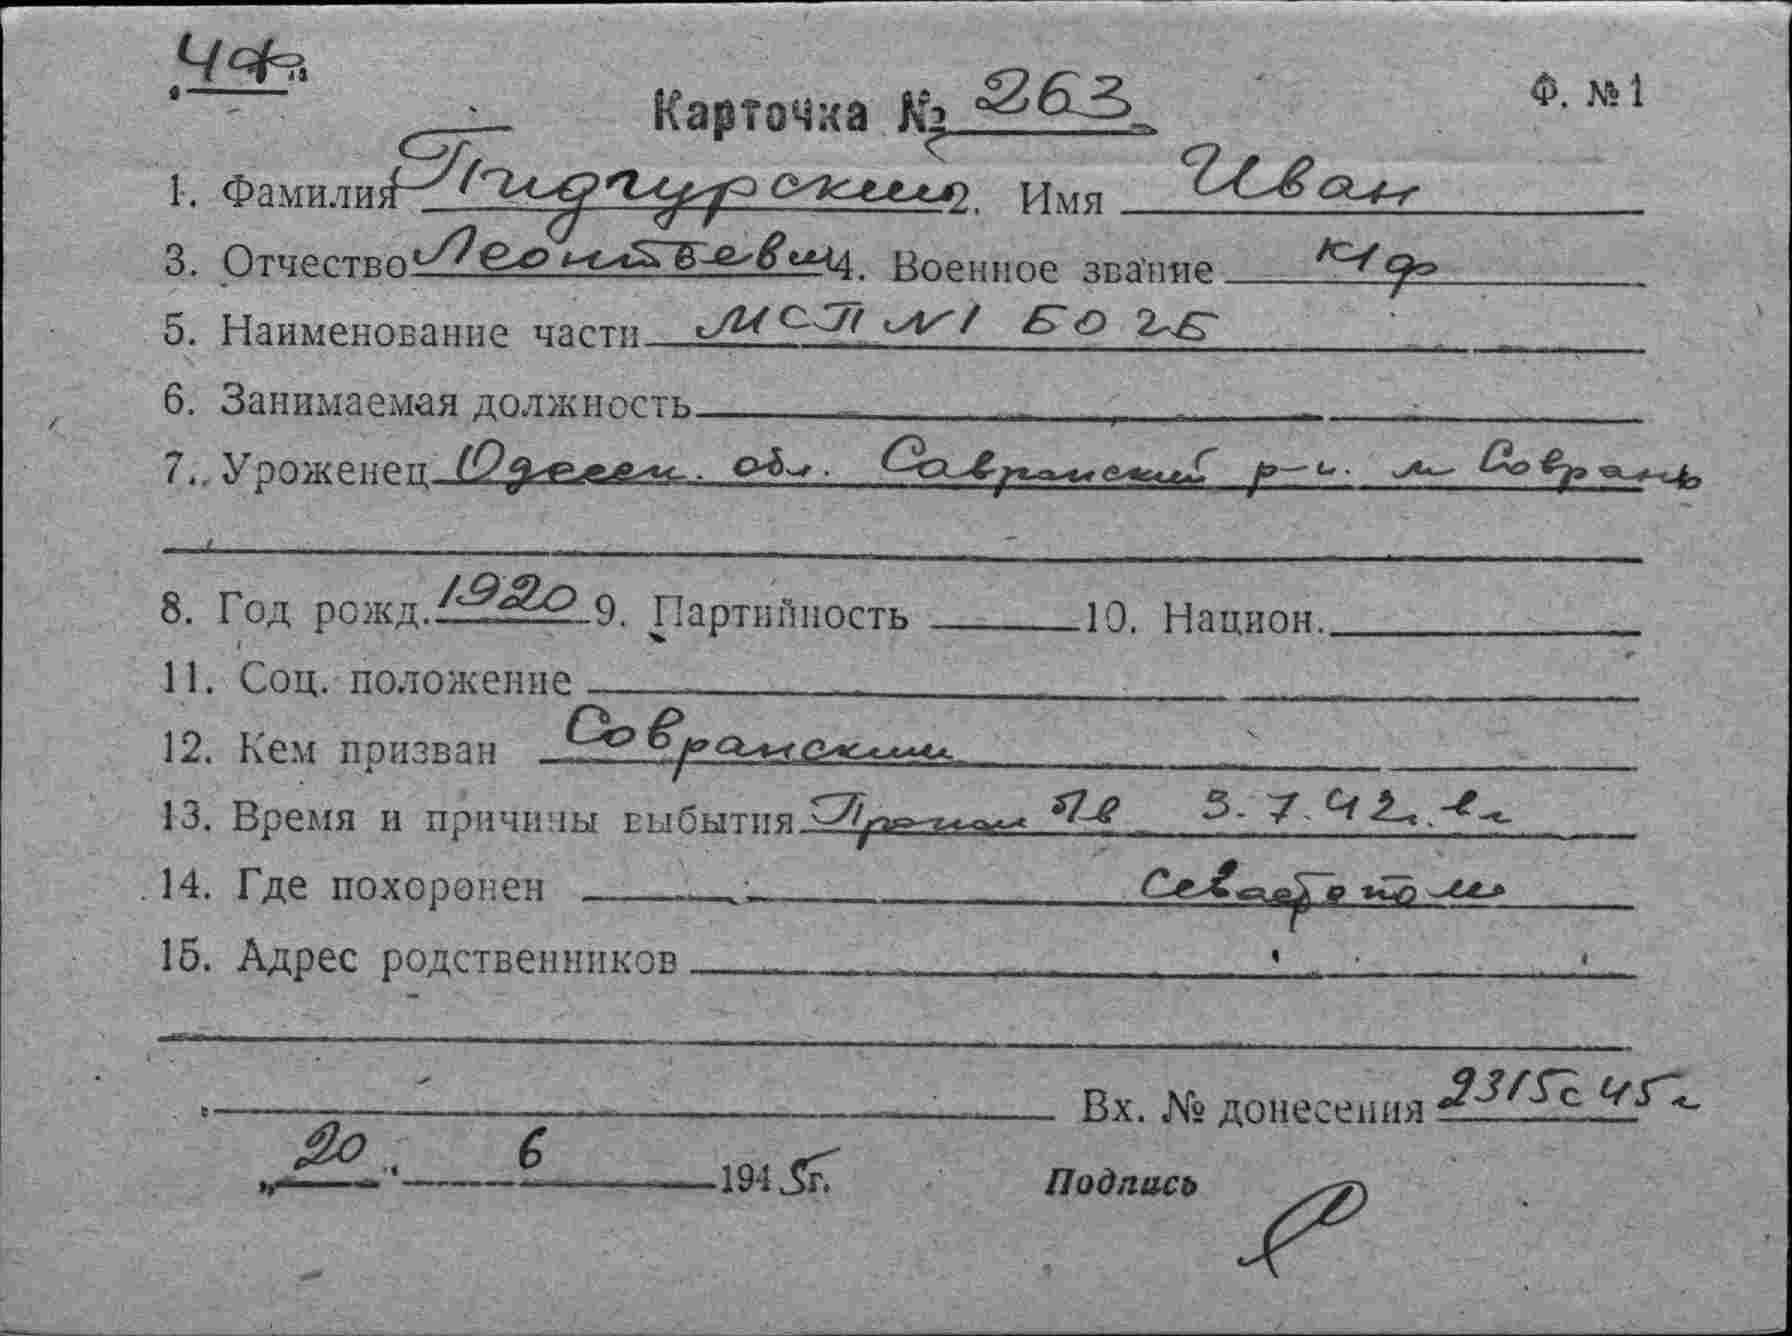 ЧФ
Карточка № 263
Ф. № 1
1. Фамилия Пидгурский 2. Имя Иван
3. Отчество Леонтьевич 4. Военное звание к/ф
5. Наименование части МСП №1 БО ГБ
6. Занимаемая должность
7. Уроженец Одесск. обл. Савранский р-н. м Саврань
8. Год рожд. 1920 9. Партийность 10. Национ.
11. Соц. положение
12. Кем призван Савранским
13. Время и причины выбытия 3.7.42 г.
14. Где похоронен Севастополь
15. Адрес родственников
Вх. № донесения 2315с 45г
„20" 6 1945г.
Подпись